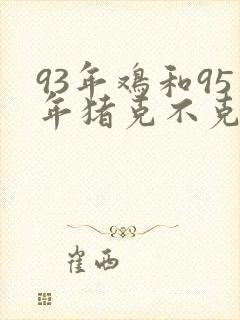 93年鸡和95
年猪克不克
崔西